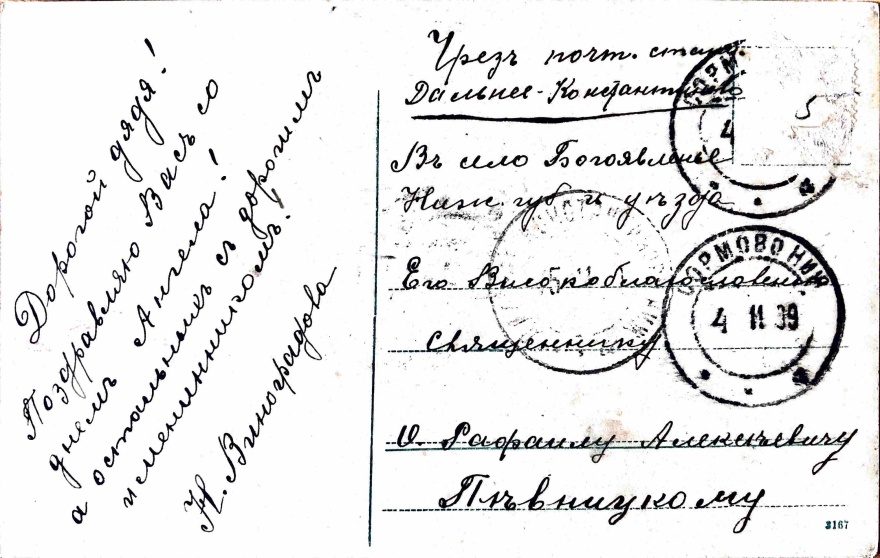 Дорогой дядя!
Поздравляю Васъ со
днемъ Ангела!
а остальныхъ съ дорогимъ
именинникомъ!
Н. Виноградова
Чрезъ почт. стан.
Дальнее-Константиново
5
Въ село Богоявленье
Ниж. губ. и уѣзда
Его Высокоблагословенію
Священнику
О. Рафаилу Алексѣевичу
Пѣвницкому
СОРМОВО НИЖ
4 11 09
3167